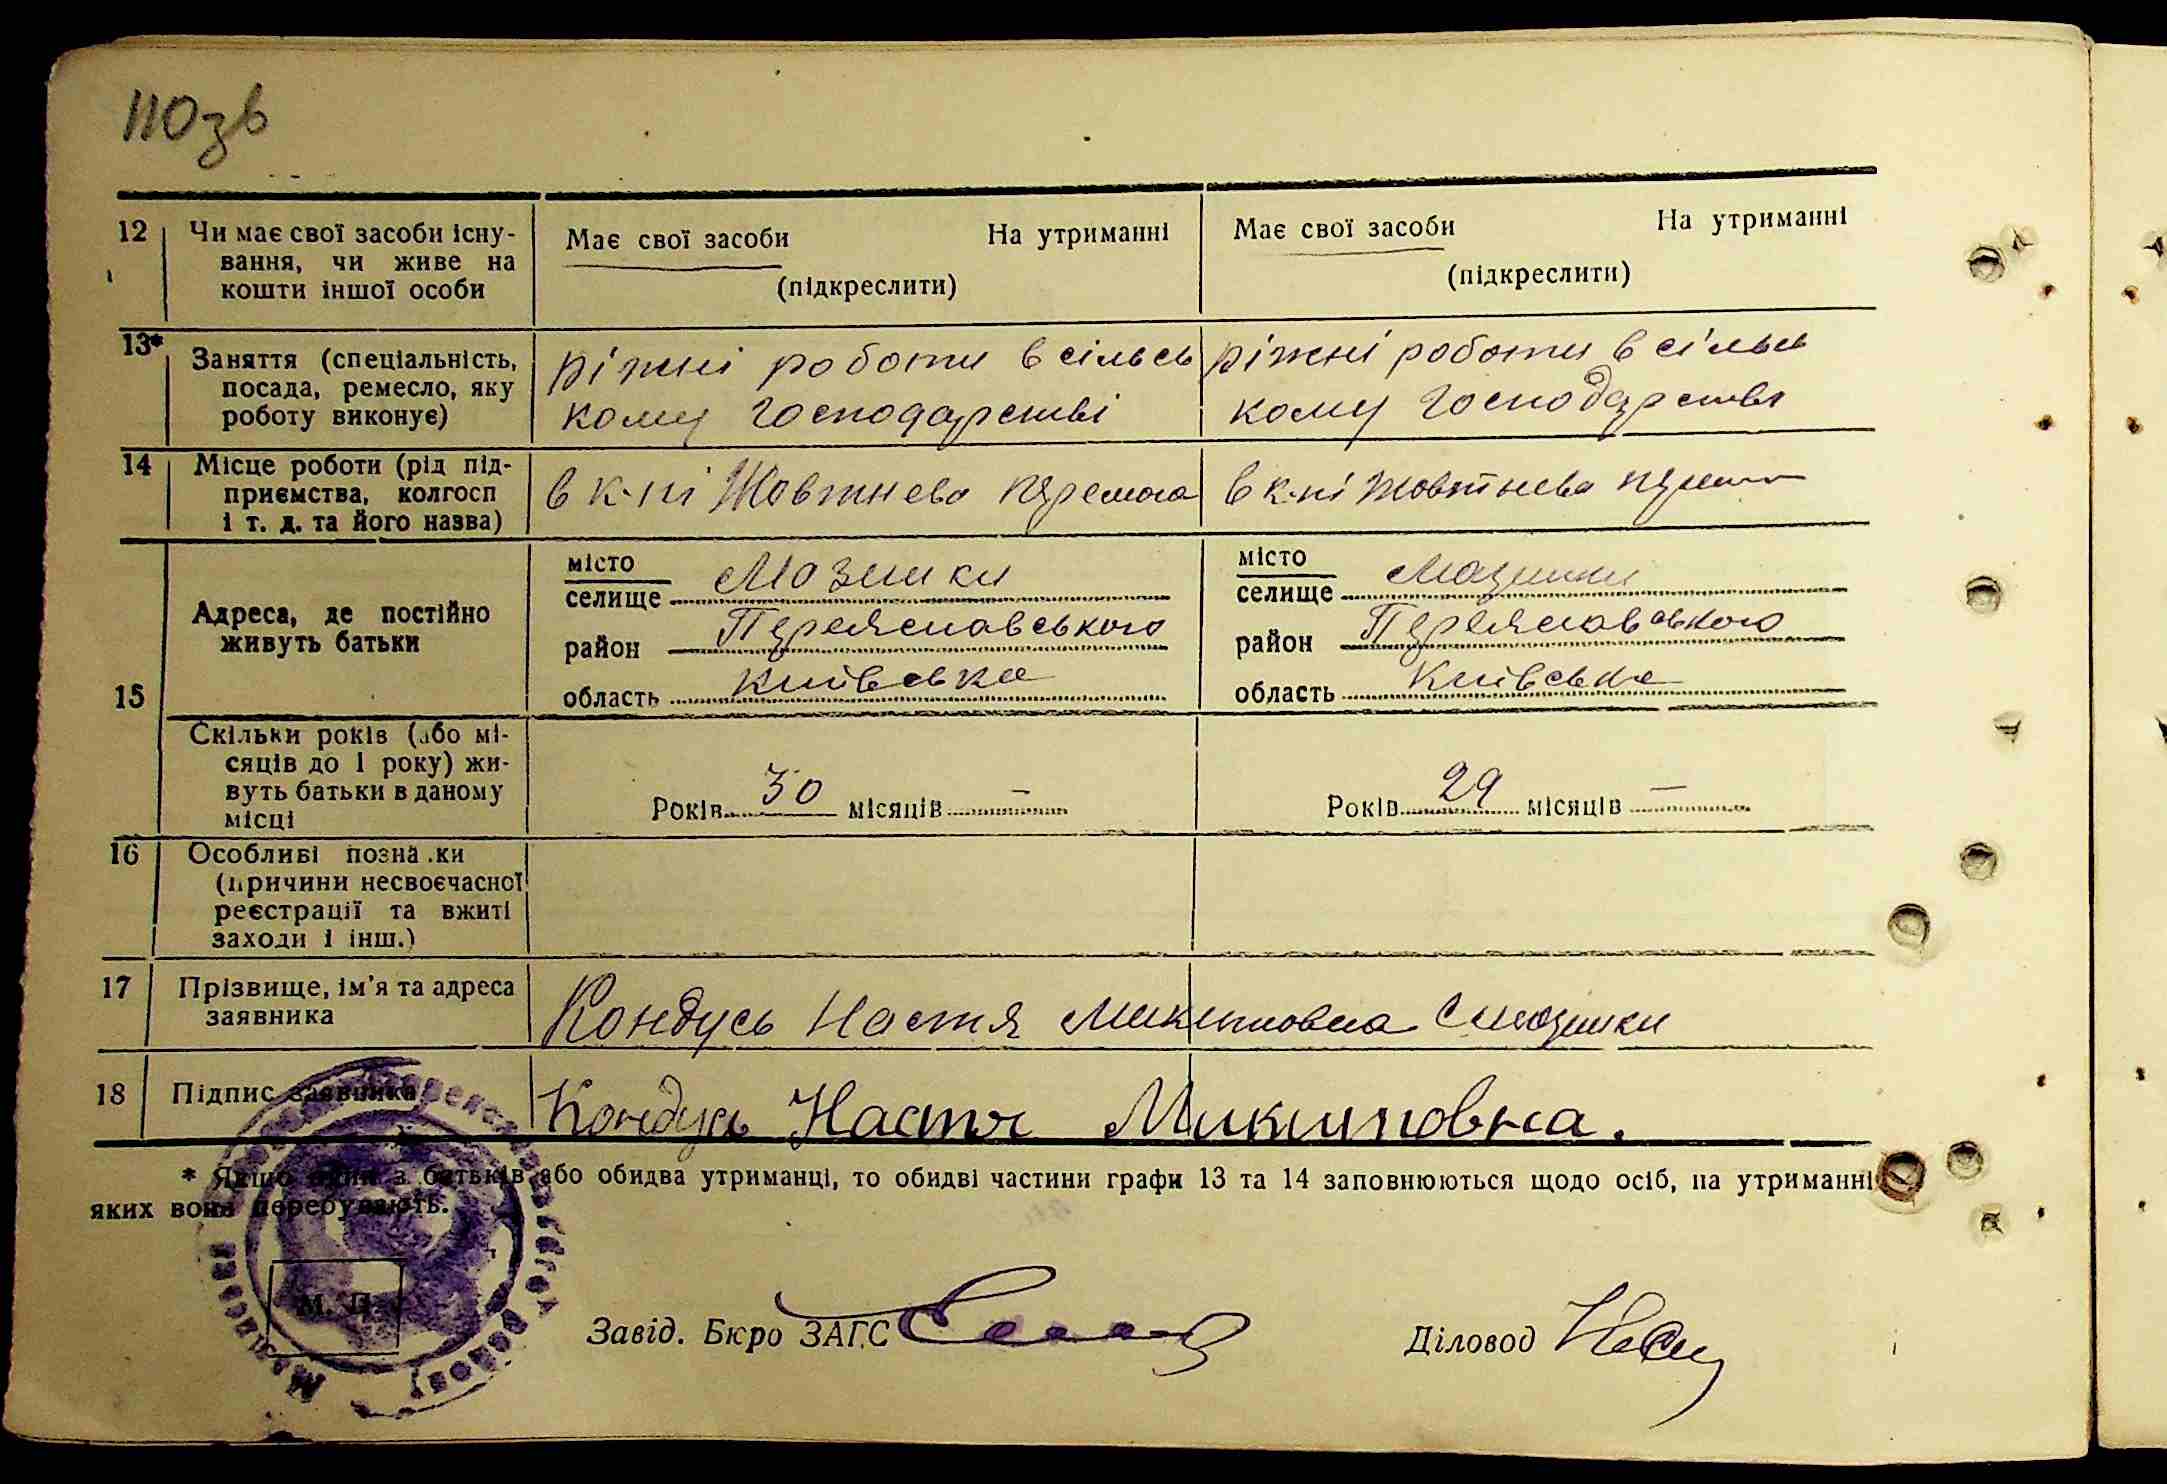 110зв
12 Чи має свої засоби існу-
вання, чи живе на
кошти іншої особи
Має свої засоби На утриманні
(підкреслити)
Має свої засоби На утриманні
(підкреслити)
13* Заняття (спеціальність,
посада, ремесло, яку
роботу виконує)
ріжні роботи в сільсь
кому господарстві
ріжні роботи в сільсь
кому господарстві
14 Місце роботи (рід під-
приємства, колгосп
і т. д. та його назва)
в к-пі Жовтнева перемога
в к-пі Жовтнева
15 Адреса, де постійно
живуть батьки
місто
селище Мазинки
район Переяславського
область Київська
місто
селище Мазинки
район Переяславського
область Київська
Скільки років (або мі-
сяців до 1 року) жи-
вуть батьки в даному
місці
Років 30 місяців —
Років 29 місяців —
16 Особливі позна.ки
(причини несвоєчасної
реєстрації та вжиті
заходи і інш.)
17 Прізвище, ім'я та адреса
заявника
Кондусь Настя Микитовна с Мазинки
18 Підпис заявника
Кондусь Настя Микитовна.
* Якщо один з батьків або обидва утриманці, то обидві частини графи 13 та 14 заповнюються щодо осіб, на утриманні
яких вони перебувають.
М. П.
Завід. Бюро ЗАГС
Діловод